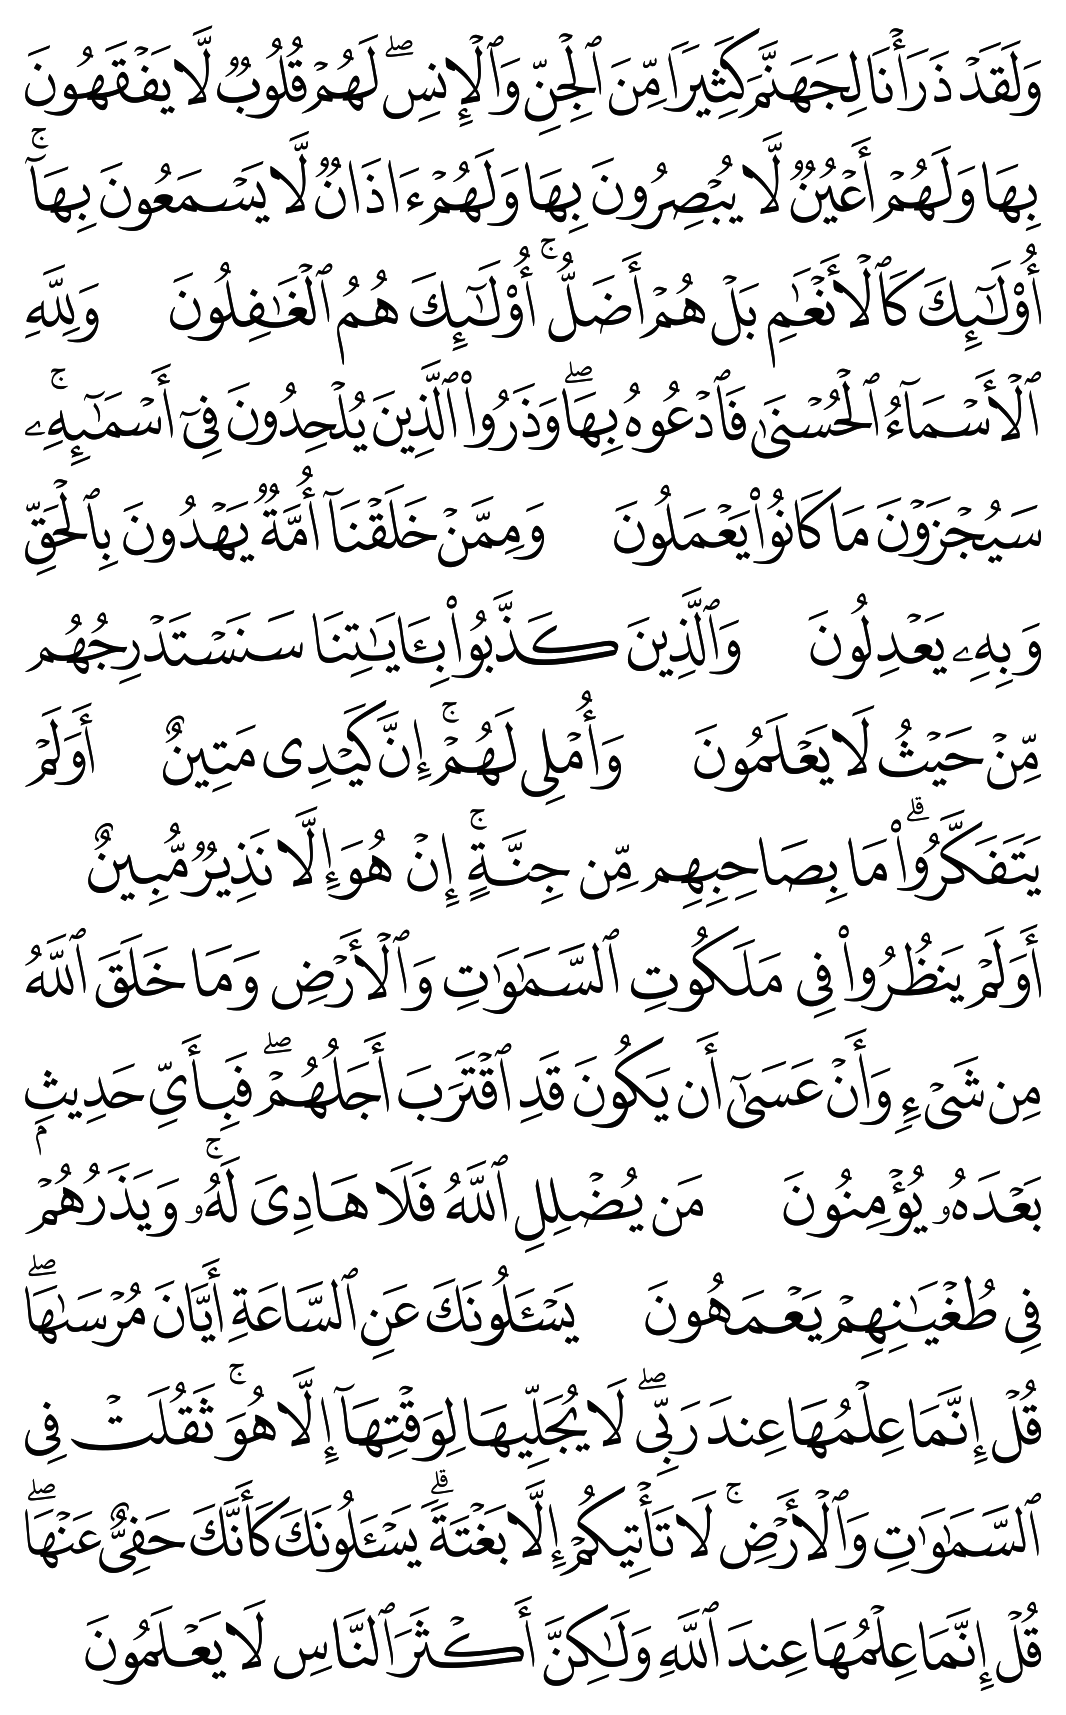 وَلَقَدۡ ذَرَأۡنَا لِجَهَنَّمَ كَثِيرٗا مِّنَ ٱلۡجِنِّ وَٱلۡإِنسِۖ لَهُمۡ قُلُوبٞ لَّا يَفۡقَهُونَ
بِهَا وَلَهُمۡ أَعۡيُنٞ لَّا يُبۡصِرُونَ بِهَا وَلَهُمۡ ءَاذَانٞ لَّا يَسۡمَعُونَ بِهَآۚ
أُوْلَٰٓئِكَ كَٱلۡأَنۡعَٰمِ بَلۡ هُمۡ أَضَلُّۚ أُوْلَٰٓئِكَ هُمُ ٱلۡغَٰفِلُونَ وَلِلَّهِ
ٱلۡأَسۡمَآءُ ٱلۡحُسۡنَىٰ فَٱدۡعُوهُ بِهَاۖ وَذَرُواْ ٱلَّذِينَ يُلۡحِدُونَ فِيٓ أَسۡمَٰٓئِهِۦۚ
سَيُجۡزَوۡنَ مَا كَانُواْ يَعۡمَلُونَ وَمِمَّنۡ خَلَقۡنَآ أُمَّةٞ يَهۡدُونَ بِٱلۡحَقِّ
وَبِهِۦ يَعۡدِلُونَ وَٱلَّذِينَ كَذَّبُواْ بِـَٔايَٰتِنَا سَنَسۡتَدۡرِجُهُم
مِّنۡ حَيۡثُ لَا يَعۡلَمُونَ وَأُمۡلِي لَهُمۡۚ إِنَّ كَيۡدِي مَتِينٌ أَوَلَمۡ
يَتَفَكَّرُواْۗ مَا بِصَاحِبِهِم مِّن جِنَّةٍۚ إِنۡ هُوَ إِلَّا نَذِيرٞ مُّبِينٌ
أَوَلَمۡ يَنظُرُواْ فِي مَلَكُوتِ ٱلسَّمَٰوَٰتِ وَٱلۡأَرۡضِ وَمَا خَلَقَ ٱللَّهُ
مِن شَيۡءٖ وَأَنۡ عَسَىٰٓ أَن يَكُونَ قَدِ ٱقۡتَرَبَ أَجَلُهُمۡۖ فَبِأَيِّ حَدِيثِۭ
بَعۡدَهُۥ يُؤۡمِنُونَ مَن يُضۡلِلِ ٱللَّهُ فَلَا هَادِيَ لَهُۥۚ وَيَذَرُهُمۡ
فِي طُغۡيَٰنِهِمۡ يَعۡمَهُونَ يَسۡـَٔلُونَكَ عَنِ ٱلسَّاعَةِ أَيَّانَ مُرۡسَىٰهَاۖ
قُلۡ إِنَّمَا عِلۡمُهَا عِندَ رَبِّيۖ لَا يُجَلِّيهَا لِوَقۡتِهَآ إِلَّا هُوَۚ ثَقُلَتۡ فِي
ٱلسَّمَٰوَٰتِ وَٱلۡأَرۡضِۚ لَا تَأۡتِيكُمۡ إِلَّا بَغۡتَةٗۗ يَسۡـَٔلُونَكَ كَأَنَّكَ حَفِيٌّ عَنۡهَاۖ
قُلۡ إِنَّمَا عِلۡمُهَا عِندَ ٱللَّهِ وَلَٰكِنَّ أَكۡثَرَ ٱلنَّاسِ لَا يَعۡلَمُونَ